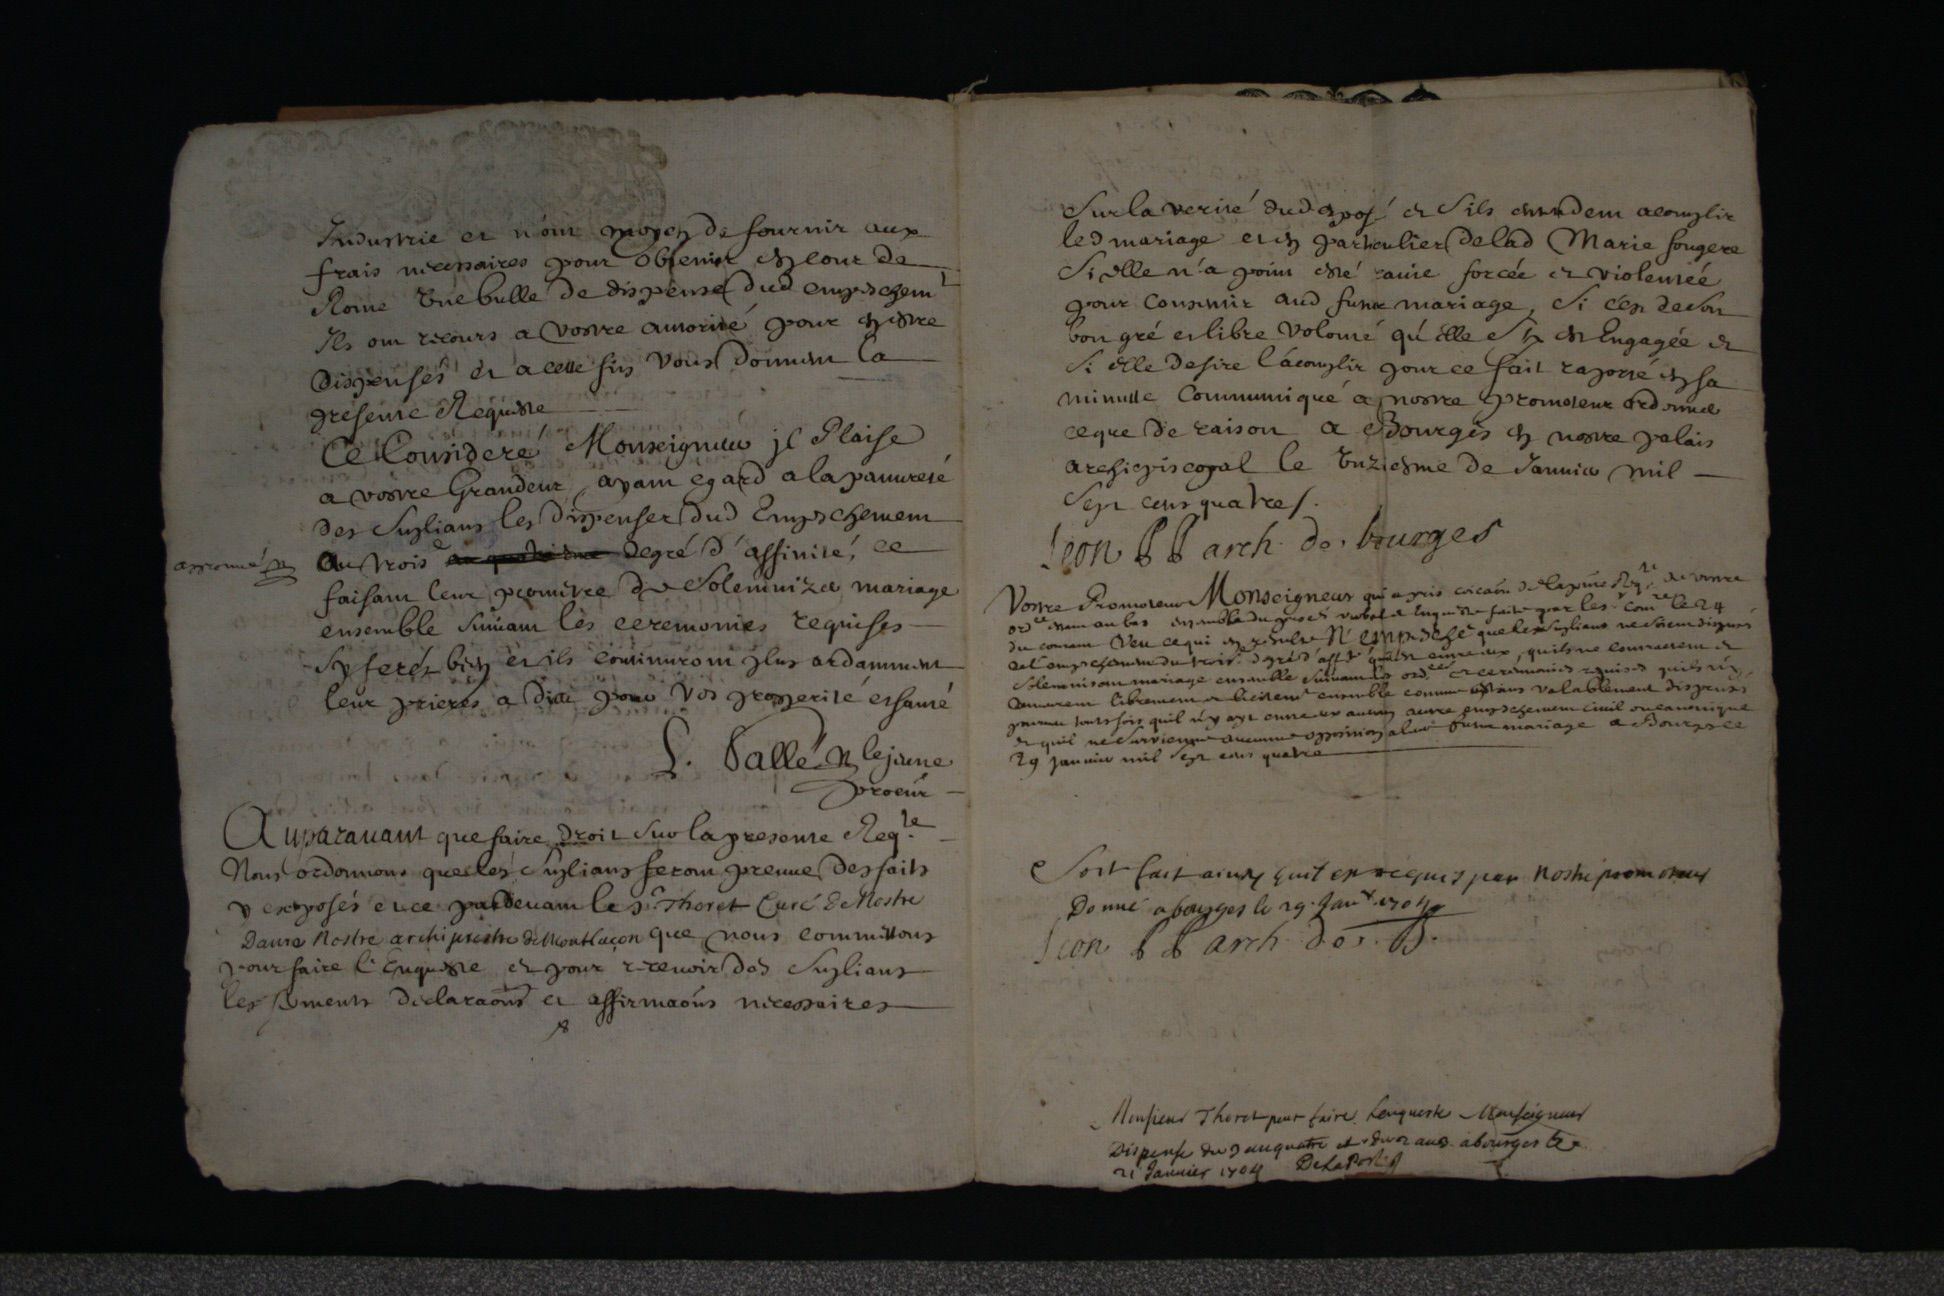 Industrie et n'ont moyen de fournir aux
frais necessaires pour obtenir en cour de
Rome une bulle de dispense dud empeschemt
Ils ont recours a vostre autorité pour en estre
dispensés et a cette fin vous donnent la
presente Requeste
Ce Consideré Monseigneur il Plaise
a vostre Grandeur, ayant egard a la pauvreté
des suplians les dispenser dud Empeschement
au trois e degré d'affinité, ce
faisant leur permettre de solemnizer mariage
ensemble suivant les ceremonies requises
sy ferés bien et ils continuront plus ardamment
leur prieres a dieu pour vos prosperité et santé
lejeune
procur
Auparavant que faire droit sur la presente Reqte
Nous ordonnons que les suplians feront preuve des faits
y exposés et ce pardevant le sr Thoret Curé de Nostre
Dame nostre archiprestre de Montluçon que nous committons
pour faire l'Enqueste et pour recevoir des suplians
les serments declaraons et affirmaons necessaires
sur la verité dud exposé et s'ils entendent acomplir
led mariage et en particulier de lad Marie fougere
Si elle n'a point esté ravie forcée et violentée
pour consentir aud futur mariage, si c'est de son
bon gré et libre volonté qu'elle s'y est Engagée et
si elle desire l'acomplir pour ce fait raporté en sa
minutte Communiqué a nostre promoteur ordonné
ce que de raison a Bourges en nostre palais
archiepiscopal le unziesme de Janvier mil
sept cens quatre
Leon P P arch. de. bourges
Vostre Promoteur Monseigneur qui a pris de la pnte Reqte de vostre
ordce estant au bas ensemble du proces verbal et Enqueste faite par les comre le 24
du courant Veu ce qui en resulte N'empesche que les suplians ne soient dispensés
de l'empeschement du trois e degré d'aff entre eux, quils ne contractent et
solemnisent mariage ensemble suivant les ordces et ceremonies requises quils n'y
demeurent librement et licitemt ensemble comme estans valablement dispensés
pourveu toutesfois quil n'y ayt entre eux aucun autre empeschement civil ou canonique
et quil ne survienne aucune opposition a leur futur mariage a Bourges ce
29 janvier mil sept cens quatre
Soit fait ainsy quil est requis par nostre promoteur
Donné a bourges le 29. Janvr 1704
Leon P P arch. de. B.
Monsieur Thoret pour faire lenqueste Monseigneur
Dispense du a bourges le
21 Janvier 1704 DeLaPorte